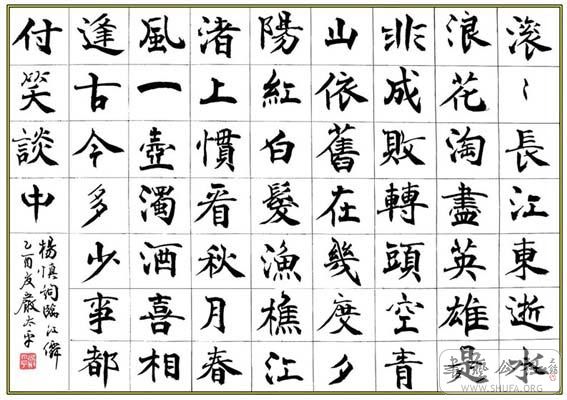 滚〻長江東逝水
浪花淘盡英雄是
非成敗轉頭空青
山依舊在幾度夕
陽紅白髮漁樵江
渚上慣看秋月春
風一壺濁酒喜相
逢古今多少事都
付笑談中
楊慎詞臨江僊
乙酉嚴太平
WWW.SHUFA.ORG